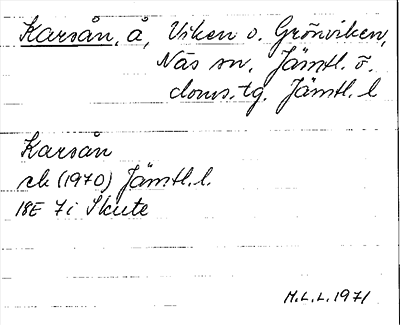 Karsån, å, Viken o. Grönviken,
Näs sn, Jämtl. ö.
doms.tg. Jämtl. l
Karsån
rk (1970) Jämtl.l.
18E 7i Skute
M.L.L. 1971